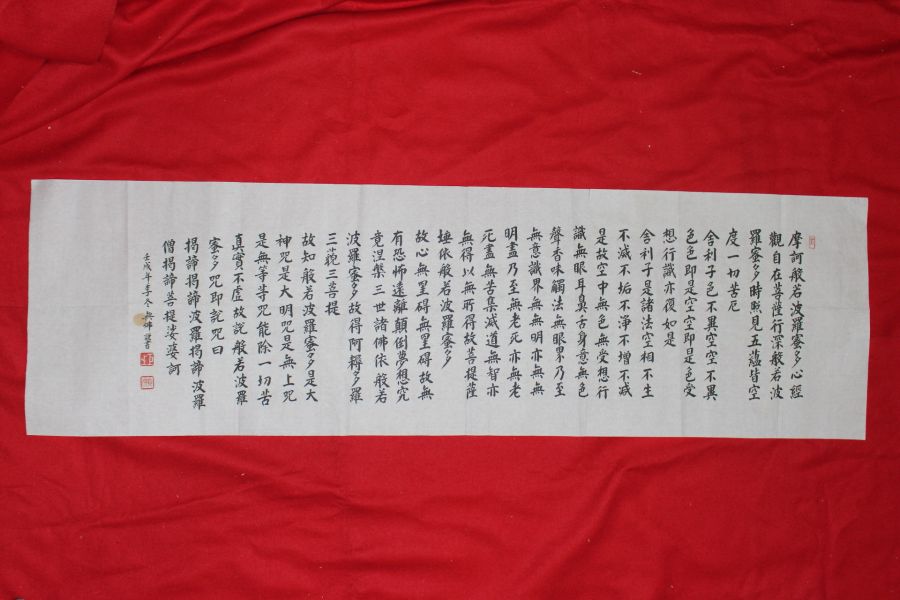 摩訶般若波羅蜜多心經
觀自在菩薩行深般若波
羅蜜多時照見五蘊皆空
度一切苦厄
舍利子色不異空空不異
色色即是空空即是色受
想行識亦復如是
舍利子是諸法空相不生
不滅不垢不淨不增不減
是故空中無色無受想行
識無眼耳鼻舌身意無色
聲香味觸法無眼界乃至
無意識界無無明亦無無
明盡乃至無老死亦無老
死盡無苦集滅道無智亦
無得以無所得故菩提薩
埵依般若波羅蜜多
故心無罣碍無罣碍故無
有恐怖遠離顛倒夢想究
竟涅槃三世諸佛依般若
波羅蜜多故得阿耨多羅
三藐三菩提
故知般若波羅蜜多是大
神咒是大明咒是無上咒
是無等等咒能除一切苦
真實不虛故說般若波羅
蜜多咒即說咒曰
揭諦揭諦波羅揭諦波羅
僧揭諦菩提娑婆訶
壬戌年季冬